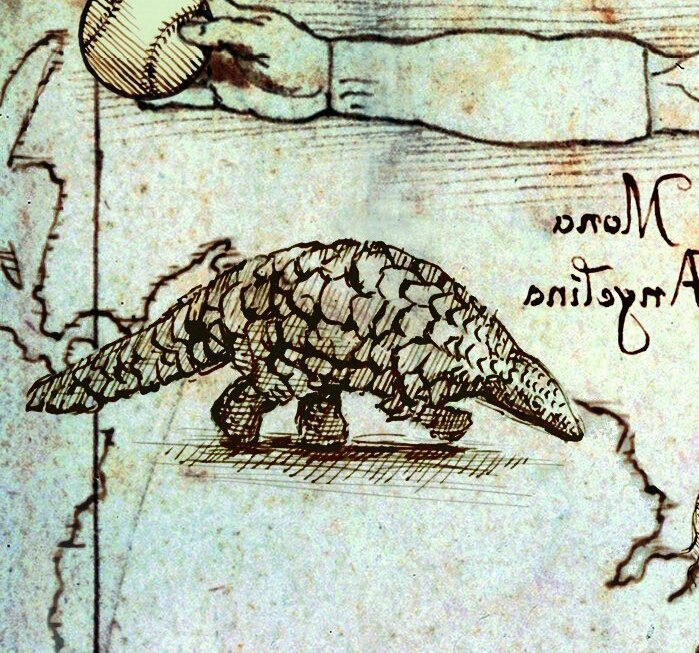 Mona
Angelina